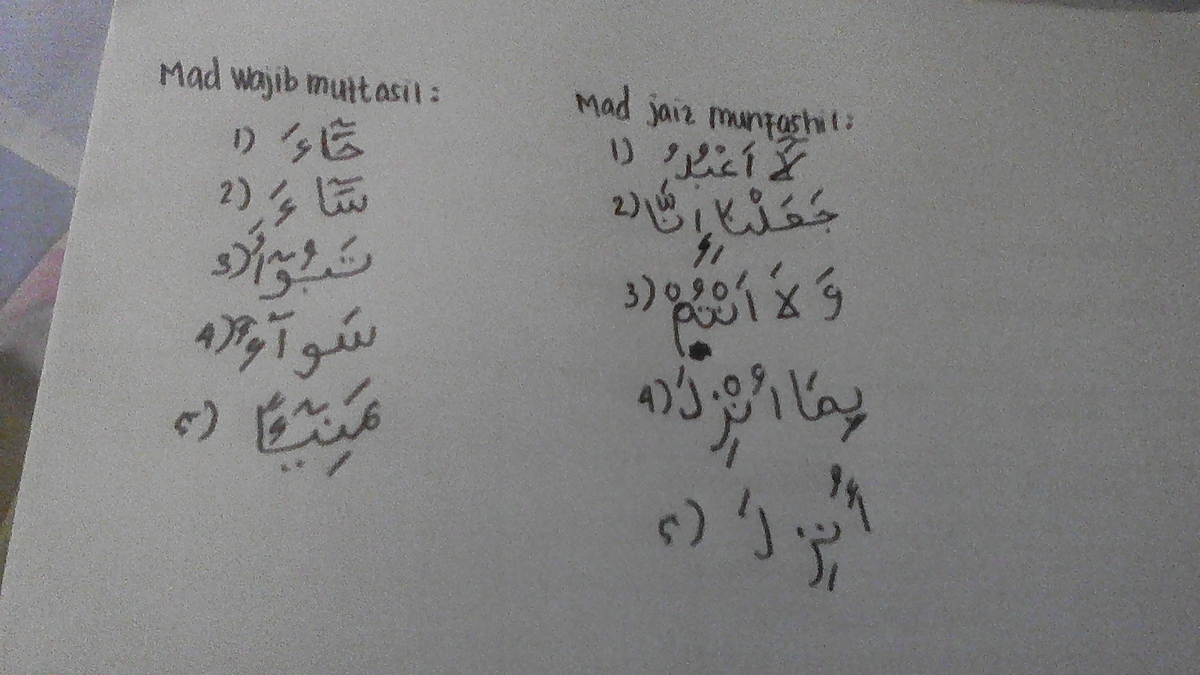 Mad wajib muttasil:
1) حَآءَ
2) سَآءَ
4) سَوآءٌ
5) هَنِيٓـًٔا
Mad jaiz munfashil:
1) لَآ اَعْبُدُ
2) جَعَلْنَا اِنَّا
3) وَلَا اَنْتُمْ
4) بِمَا اُنْزِلَ
5) اُنْزِلَ